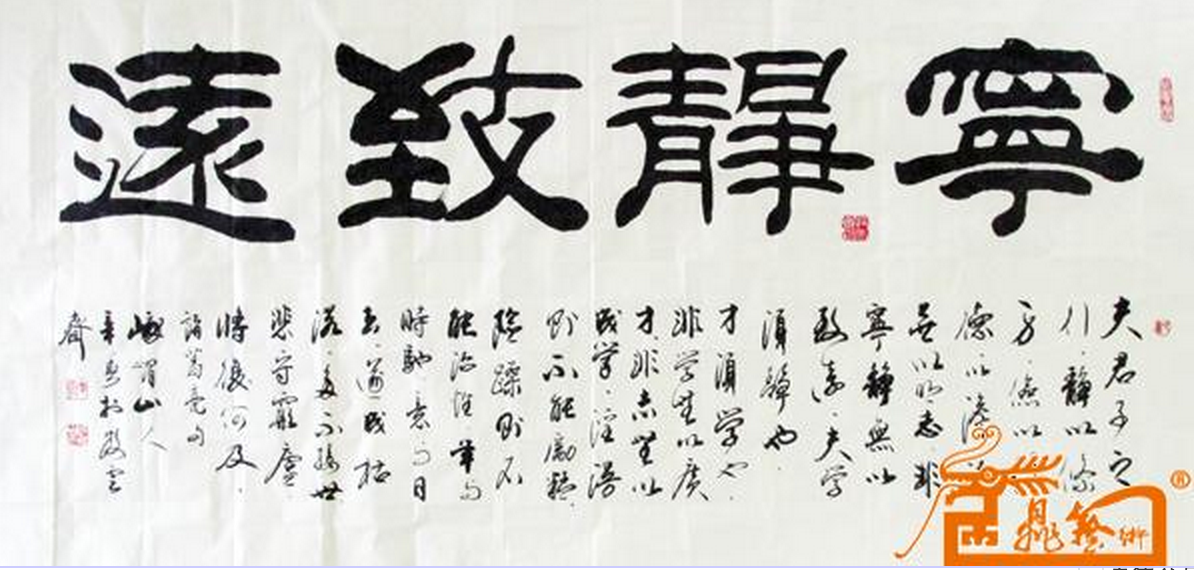 寧靜致遠
夫君子之
行靜以修
身儉以
德
無以明志非
寧靜無以
致遠夫學
須靜也
才須學也
非學無以廣
才非志無以
成學淫慢
則不能勵精
險躁則不
能治性年与
時馳意与日
去遂成枯
落多不接世
悲守窮廬
將復何及
諸葛亮句
峨眉山人
雲
齋